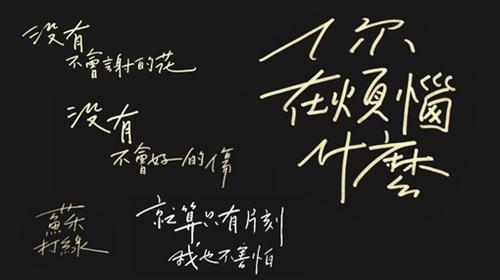 没有
不會謝的花
没有
不會好的傷
你
在煩惱
什麼
蘇
打綠
就算只有片刻
我也不害怕